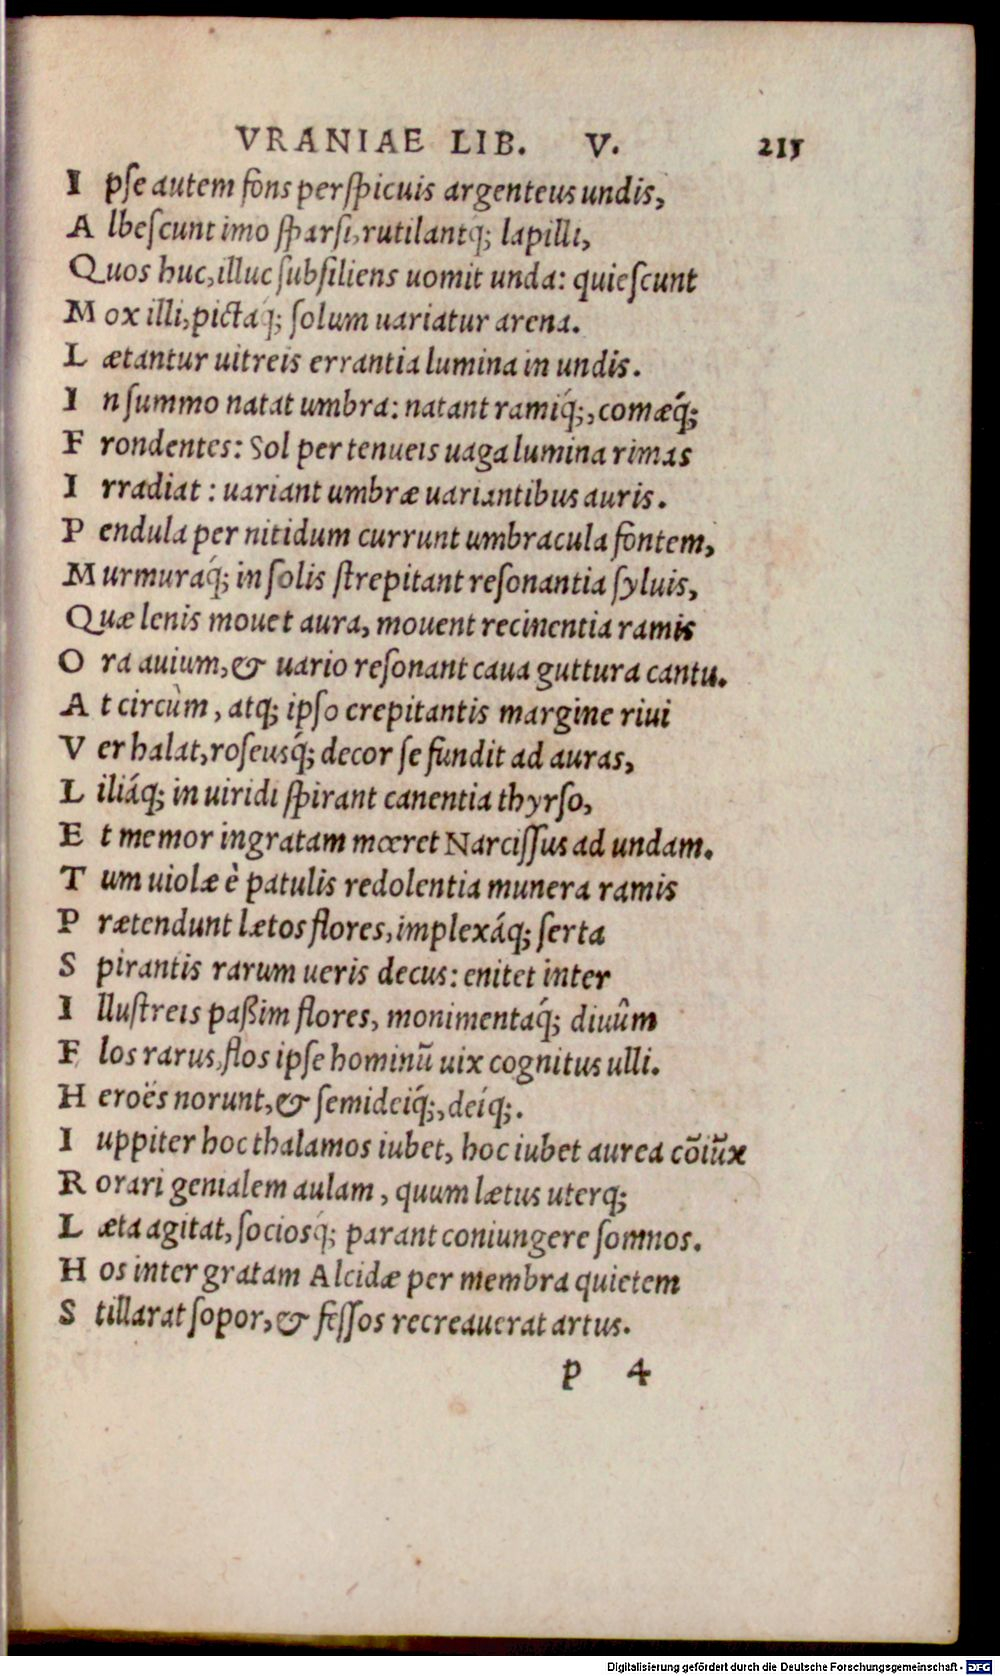 VRANIAE LIB. V. 215
I pſe autem fons perſpicuis argenteus undis,
A lbeſcunt imo ſparſi, rutilantq́; lapilli,
Quos huc, illuc ſubſiliens uomit unda: quieſcunt
M ox illi, pictaq́; ſolum uariatur arena.
L ætantur uitreis errantia lumina in undis.
I n ſummo natat umbra: natant ramiq́;, comæq́;
F rondentes: Sol per tenueis uaga lumina rimas
I rradiat: uariant umbræ uariantibus auris.
P endula per nitidum currunt umbracula fontem,
M urmuraq́; in ſolis ſtrepitant reſonantia ſyluis,
Quæ lenis mouet aura, mouent recinentia ramis
O ra auium, & uario reſonant caua guttura cantu.
A t circùm, atq; ipſo crepitantis margine riui
V er halat, roſeusq́; decor ſe fundit ad auras,
L iliáq; in uiridi ſpirant canentia thyrſo,
E t memor ingratam mœret Narciſſus ad undam.
T um uiolæ è patulis redolentia munera ramis
P rætendunt lætos flores, implexáq; ſerta
S pirantis rarum ueris decus: enitet inter
I lluſtreis paßim flores, monimentaq́; diuûm
F los rarus, flos ipſe hominũ uix cognitus ulli.
H eroës norunt, & ſemideiq́;, deíq;.
I uppiter hoc thalamos iubet, hoc iubet aurea cõiũx
R orari genialem aulam, quum lætus uterq;
L æta agitat, ſociosq́; parant coniungere ſomnos.
H os inter gratam Alcidæ per membra quietem
S tillarat ſopor, & feſſos recreauerat artus.
p 4
Digitalisierung gefördert durch die Deutsche Forschungsgemeinschaft - DFG